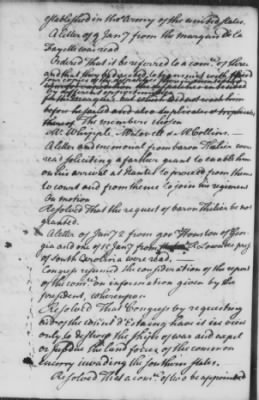 established in the Army of the united states.
A letter of 9 Jany from the marquis de la
Fayette was read
Ordered That it be referred to a com.ee of three
and that they be directed to
before he sailed and also duplicates or triplicates
thereof The members chosen
Mr. Whipple, Mr Lovell & Mr Collins.
A letter and memorial from baron Thulier were
read soliciting a farther grant to enable him
on his arrival at Nantes to proceed from thence
to court and from thence to join his regiment
On motion
Resolved That the request of baron Thulier be not
granted.
A letter of Jany 2 from gov Houston of Geor
gia and one of 10 Jany from R. Lowndes presdt
of South Carolina were read. —
Congress resumed the consideration of the report
of the comee on information given by the
president, whereupon
Resolved That Congress by requesting
aid of the Count d'Estaing have it in view
only to destroy the ships of war and expel
or subdue the land forces of the common
Enemy invading the southern states.
Resolved That a comee. of two be appointed